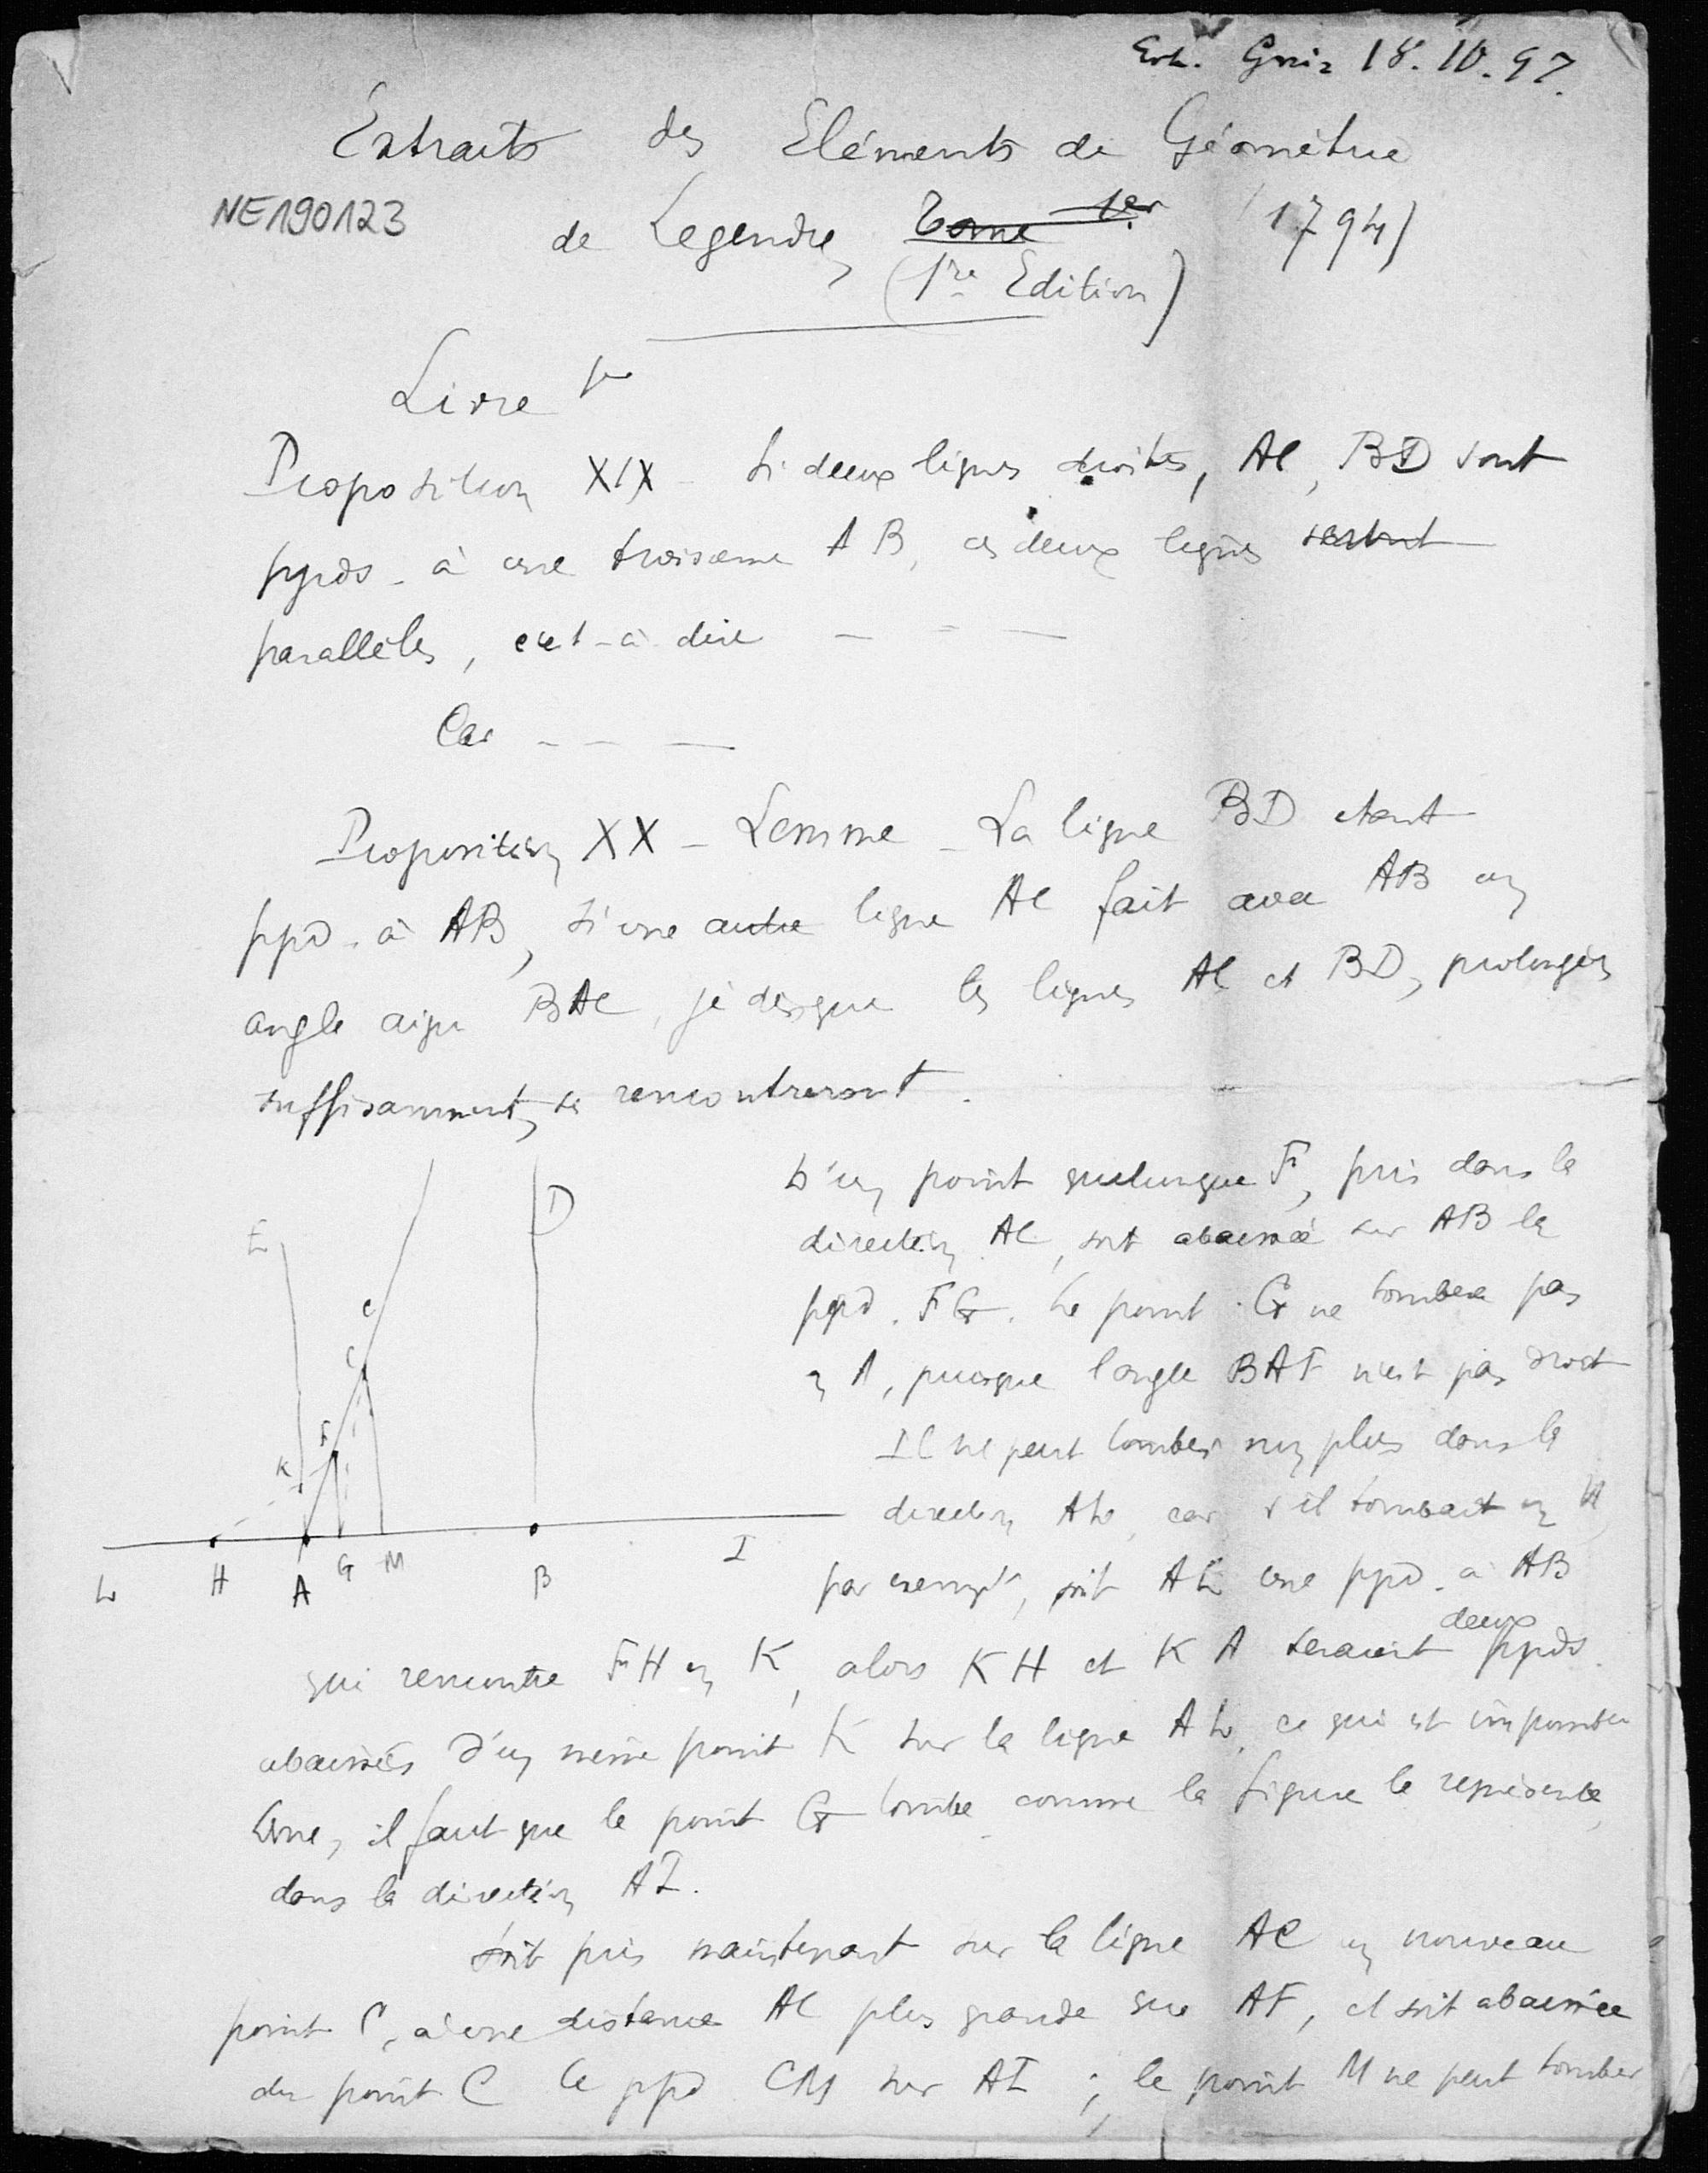 Erh. Gniz 18.10.97.
Extraits des Eléments de Géométrie
NE190123
de Legendre, Tome 1er (1794)
(1re Edition)
Livre 1er
Proposition XIX - Si deux lignes droites, AC, BD sont
ppds. à une troisième AB, ces deux lignes seront
parallèles, c'est-à-dire - - -
Car - - -
Proposition XX - Lemme - La ligne BD étant
ppd. à AB, si une autre ligne AC fait avec AB un
angle aigu BAC, je dis que les lignes AC et BD, prolongées
suffisamment, se rencontreront.
D'un point quelconque F, pris dans la
direction AC, soit abaissée sur AB la
ppd. FG. Le point G ne tombera pas
en A, puisque l'angle BAF n'est pas droit
Il ne peut tomber non plus dans la
direction AL, car s'il tombait en H
par exemple, soit AE une ppd. à AB
qui rencontre FH en K, alors KH et KA seraient deux ppds.
abaissées d'un même point K sur la ligne AL, ce qui est impossible
Donc, il faut que le point G tombe comme la figure le représente,
dans la direction AI.
Soit pris maintenant sur la ligne AC un nouveau
point C, à une distance AC plus grande que AF, et soit abaissée
du point C la ppd CM sur AI ; le point M ne peut tomber
E
D
C
C
F
K
L
H
A
G
M
B
I